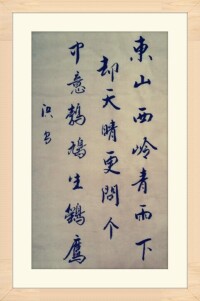 東山西岭青雨下
却天晴更問个
中意鵓鳩生鷂鷹